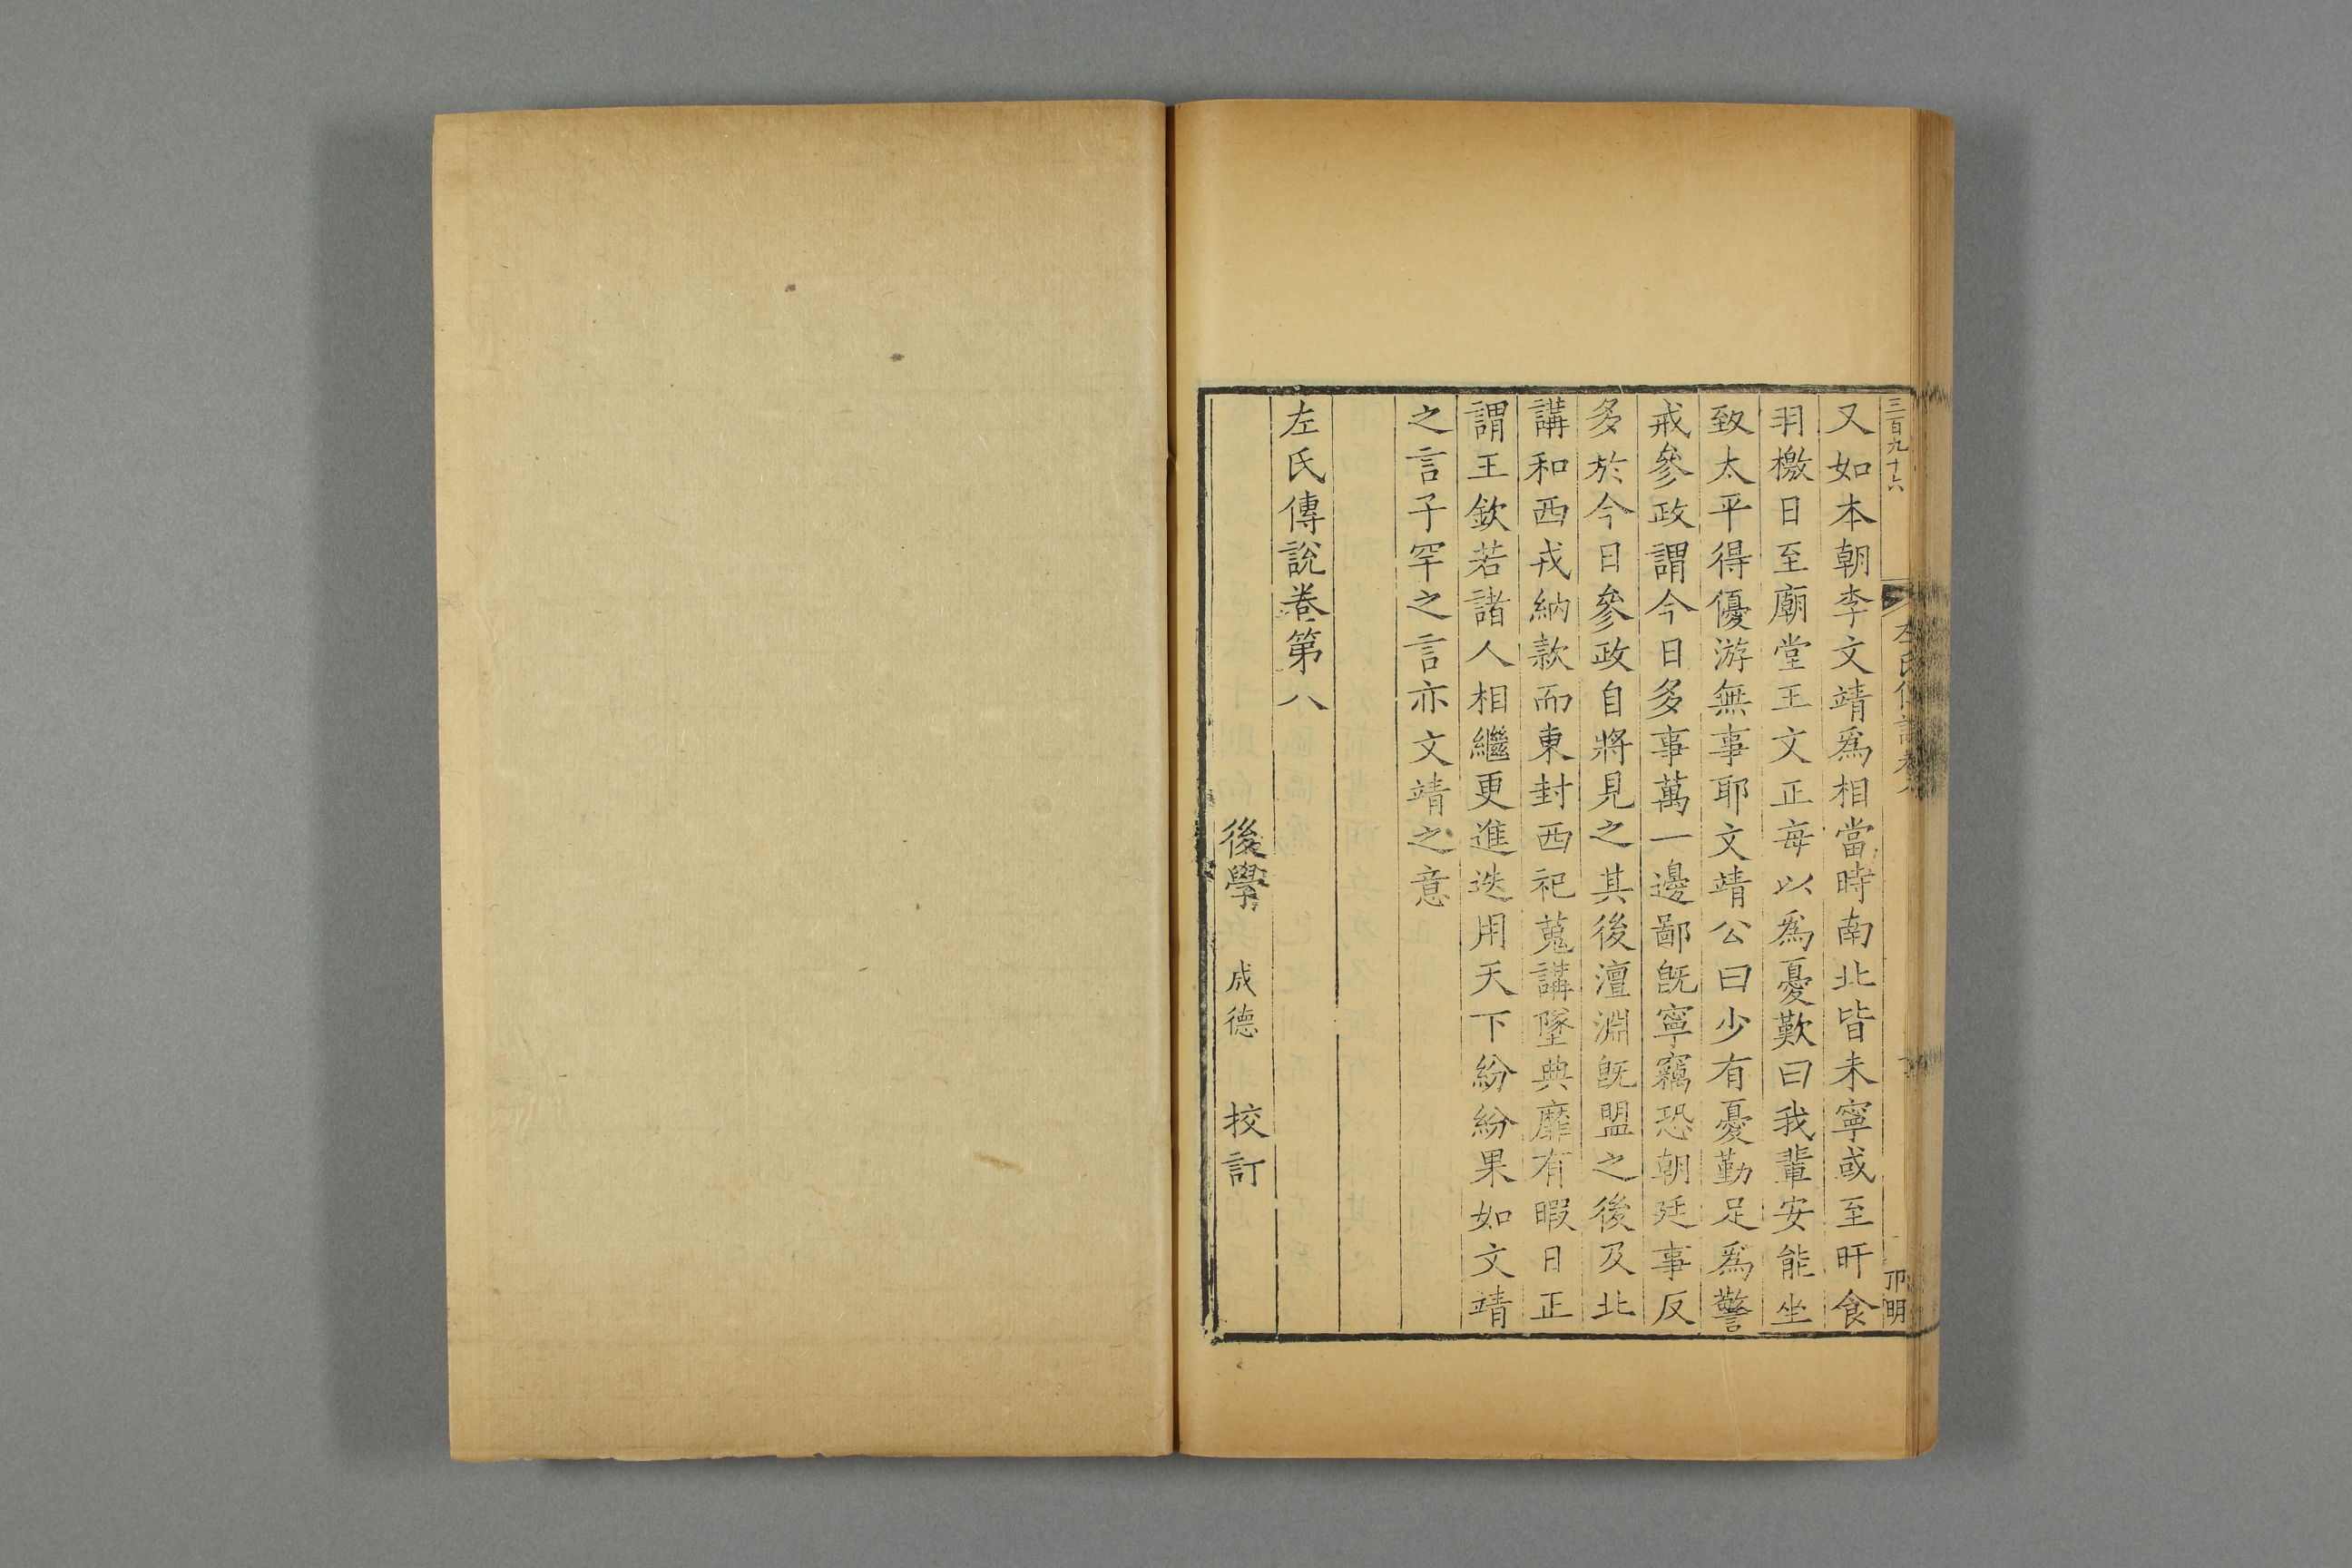 三百九十六
左氏傳說卷八
卬明
又如本朝李文靖爲相當時南北皆未寧或至旰食
羽檄日至廟堂王文正每以爲憂歎曰我輩安能坐
致太平得優游無事耶文靖公曰少有憂勤足爲警
戒參政謂今日多事萬一邊鄙旣寧竊恐朝廷事反
多於今日參政自將見之其後澶淵旣盟之後及北
講和西戎納款而東封西祀蒐講墜典靡有暇日正
謂王欽若諸人相繼更進迭用天下紛紛果如文靖
之言子罕之言亦文靖之意
左氏傳說卷第八
後學 成德 校訂